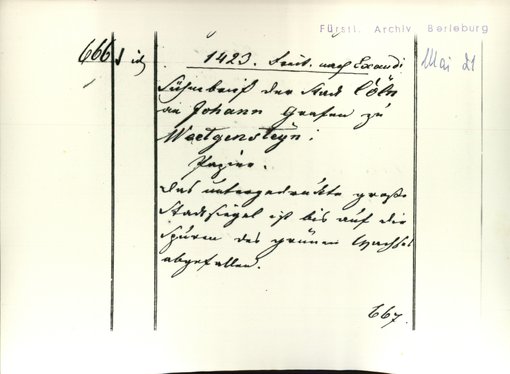 Fürstl. Archiv Berleburg
666
1423. Freit. nach Exaudi
Mai 21
Sühnbrief der Stadt Cöln
an Johann Grafen zu
Witgensteyn.
Papier.
Das untergedrukte große
Stadtsiegel ist bis auf die
Spuren des grünen Wachses
abgefallen.
667.